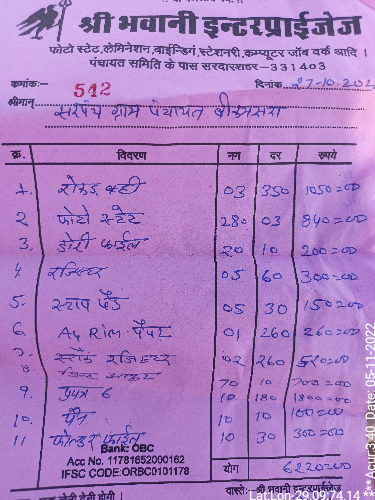 श्री भवानी इन्टरप्राईजेज
फोटो स्टेट,लेमिनेशन,बाईन्डिंग,स्टेशनरी,कम्प्यूटर जॉब वर्क आदि ।
पंचायत समिति के पास सरदारशहर-331403
क्रमांक:- 542 दिनांक 27-10-202
श्रीमान् सरपंच ग्राम पंचायत
क्र. विवरण नग दर रुपये
1. रोकड़ बही 03 350 1050=00
2 फोटो स्टेट 280 03 840=00
3. डोरी फाईल 20 10 200=00
4. रजिस्टर 05 60 300=00
5. स्टाम्प पैड 05 30 150=00
6. A4 Rim पेपर 01 260 260=00
7. स्टॉक रजिस्टर 02 260 520=00
8 70 10 700=00
9. प्रपत्र 6 10 180 1800=00
10. पैन 10 10 100=00
11 फोल्डर फाईल 10 30 300=00
Bank: OBC
Acc No. 11781652000162
IFSC CODE:ORBC0101178
योग 6220=00
वास्ते:- श्री भवानी इन्टरप्राईजेज
Lat:Lon-29.09:74.14
*Acur:3.40 Date: 05-11-2022